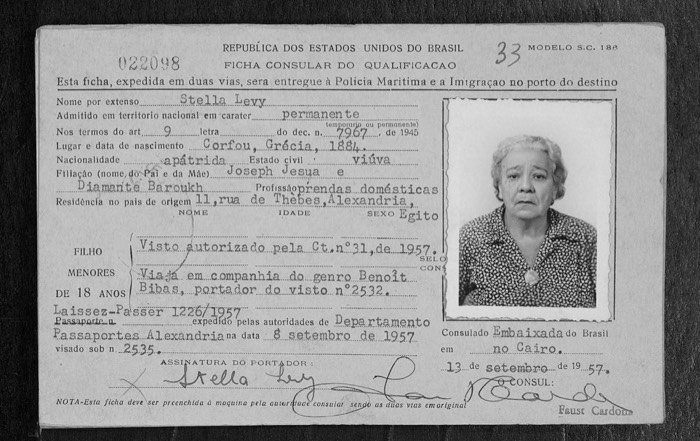 REPUBLICA DOS ESTADOS UNIDOS DO BRASIL
33 MODELO S.C. 186
022098 FICHA CONSULAR DO QUALIFICACAO
Esta ficha, expedida em duas vias, sera entregue à Policia Maritima e a Imigraçao no porto do destino
Nome por extenso Stella Levy
Admitido em territorio nacional em carater permanente
(temporario ou permanente)
Nos termos do art. 9 letra do dec. n. 7967, de 1945
Lugar e data de nascimento Corfou, Grécia, 1884.
Nacionalidade apátrida Estado civil viúva
Filiação (nome do Pai e da Mãe) Joseph Jesua e
Diamante Baroukh Profissão prendas domésticas
Residência no pais de origem 11,rua de Thèbes,Alexandria,
NOME IDADE SEXO Egito
FILHO
MENORES
DE 18 ANOS
Visto autorizado pela Ct.nº31,de 1957.
Viaja em companhia do genro Benoît
Bibas, portador do visto nº2532.
SELO
CONS
Laissez-Passer 1226/1957
Passaporte n. expedido pelas autoridades de Departamento
Passaportes Alexandria na data 8 setembro de 1957
visado sob n. 2535.
ASSINATURA DO PORTADOR:
Stella Levy
Consulado Embaixada do Brasil
em no Cairo.
13 de setembro de 19 57.
O CONSUL:
Faust Cardona
NOTA-Esta ficha deve ser preenchida à maquina pela autoridade consular sendo as duas vias em original